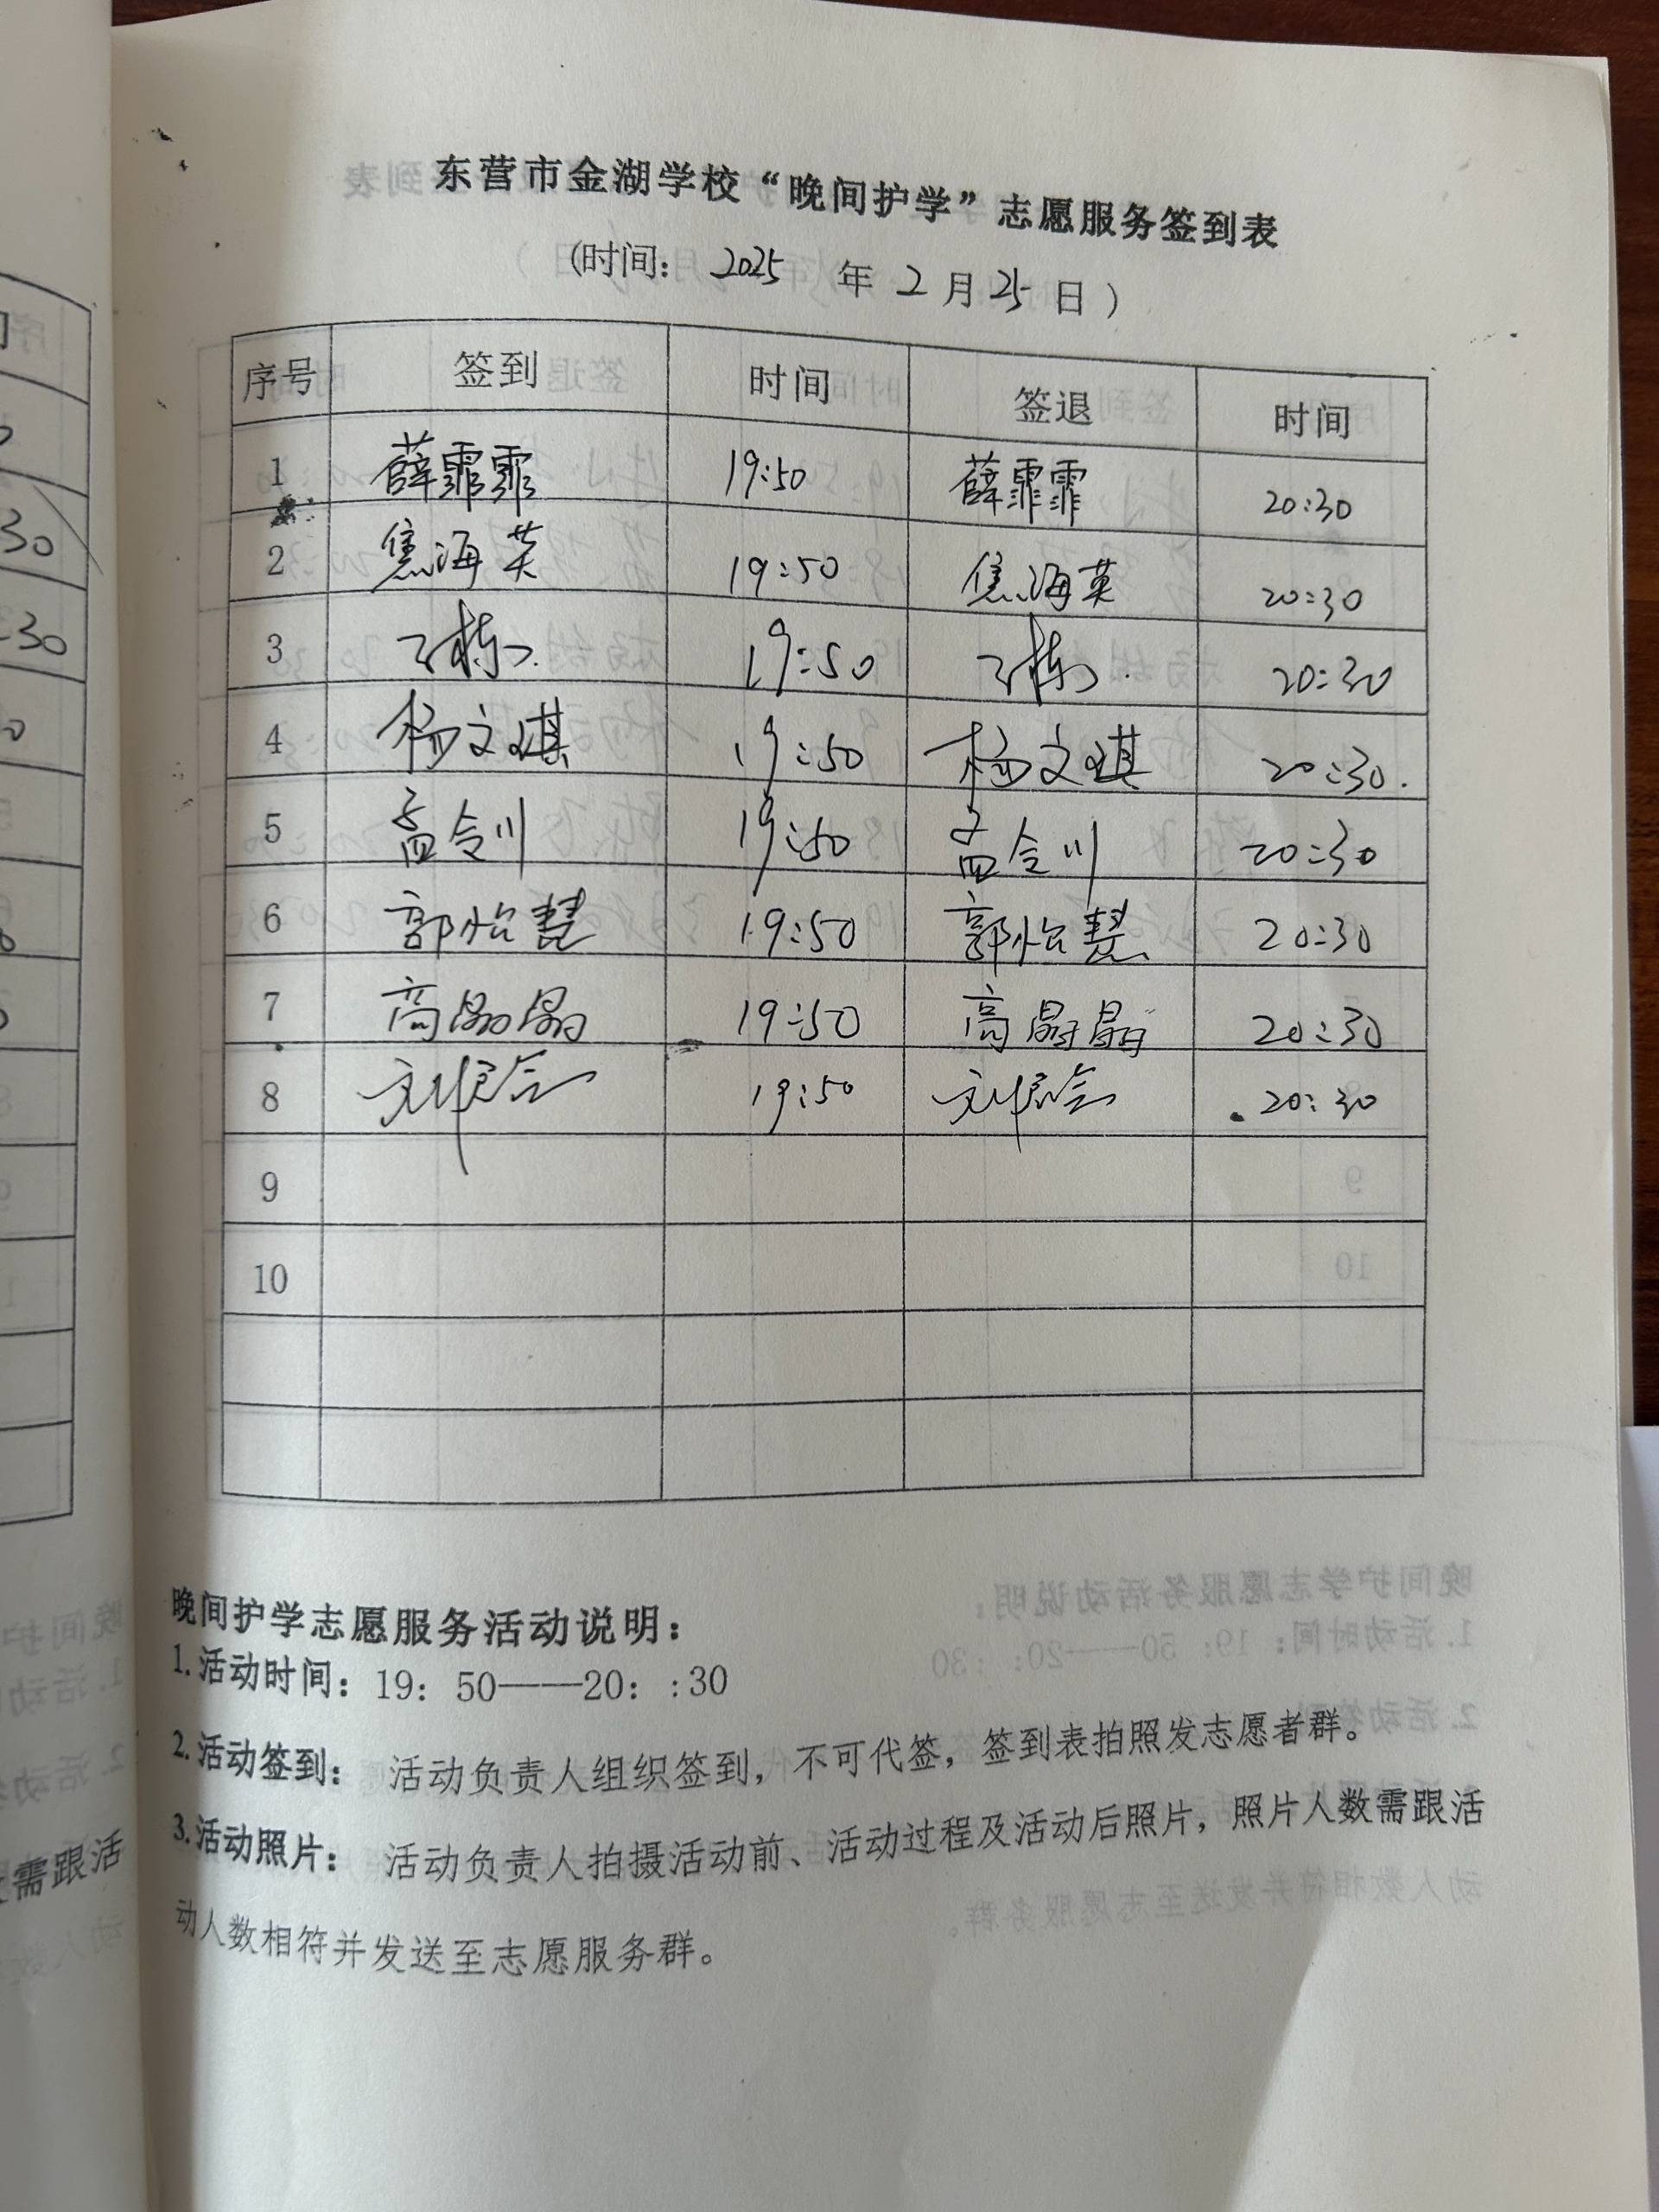 东营市金湖学校“晚间护学”志愿服务签到表
(时间: 2025 年 2 月 25 日)
序号 签到 时间 签退 时间
1 薛霏霏 19:50 薛霏霏 20:30
2 焦海英 19:50 焦海英 20:30
3 19:50 20:30
4 杨文琪 19:50 杨文琪 20:30.
5 孟令川 19:50 孟令川 20:30
6 郭怡慧 19:50 郭怡慧 20:30
7 高晶晶 19:50 高晶晶 20:30
8 19:50 20:30
9
10
晚间护学志愿服务活动说明:
1.活动时间: 19: 50——20: :30
2.活动签到: 活动负责人组织签到,不可代签,签到表拍照发志愿者群。
3.活动照片: 活动负责人拍摄活动前、活动过程及活动后照片,照片人数需跟活
动人数相符并发送至志愿服务群。
需跟活